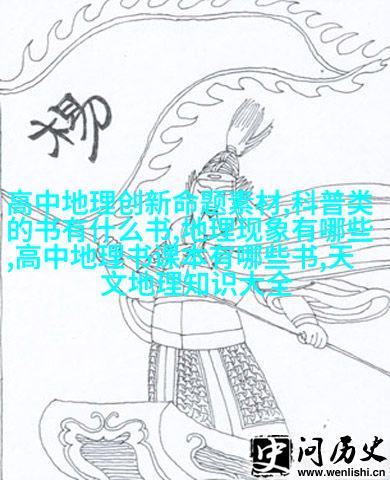 楊
高中地理创新命题素材,科普类
的书有什么书,地理现象有哪些
,高中地理书课本有哪些书,天
文地理知识大全
史问历史
www.wenlishi.cn